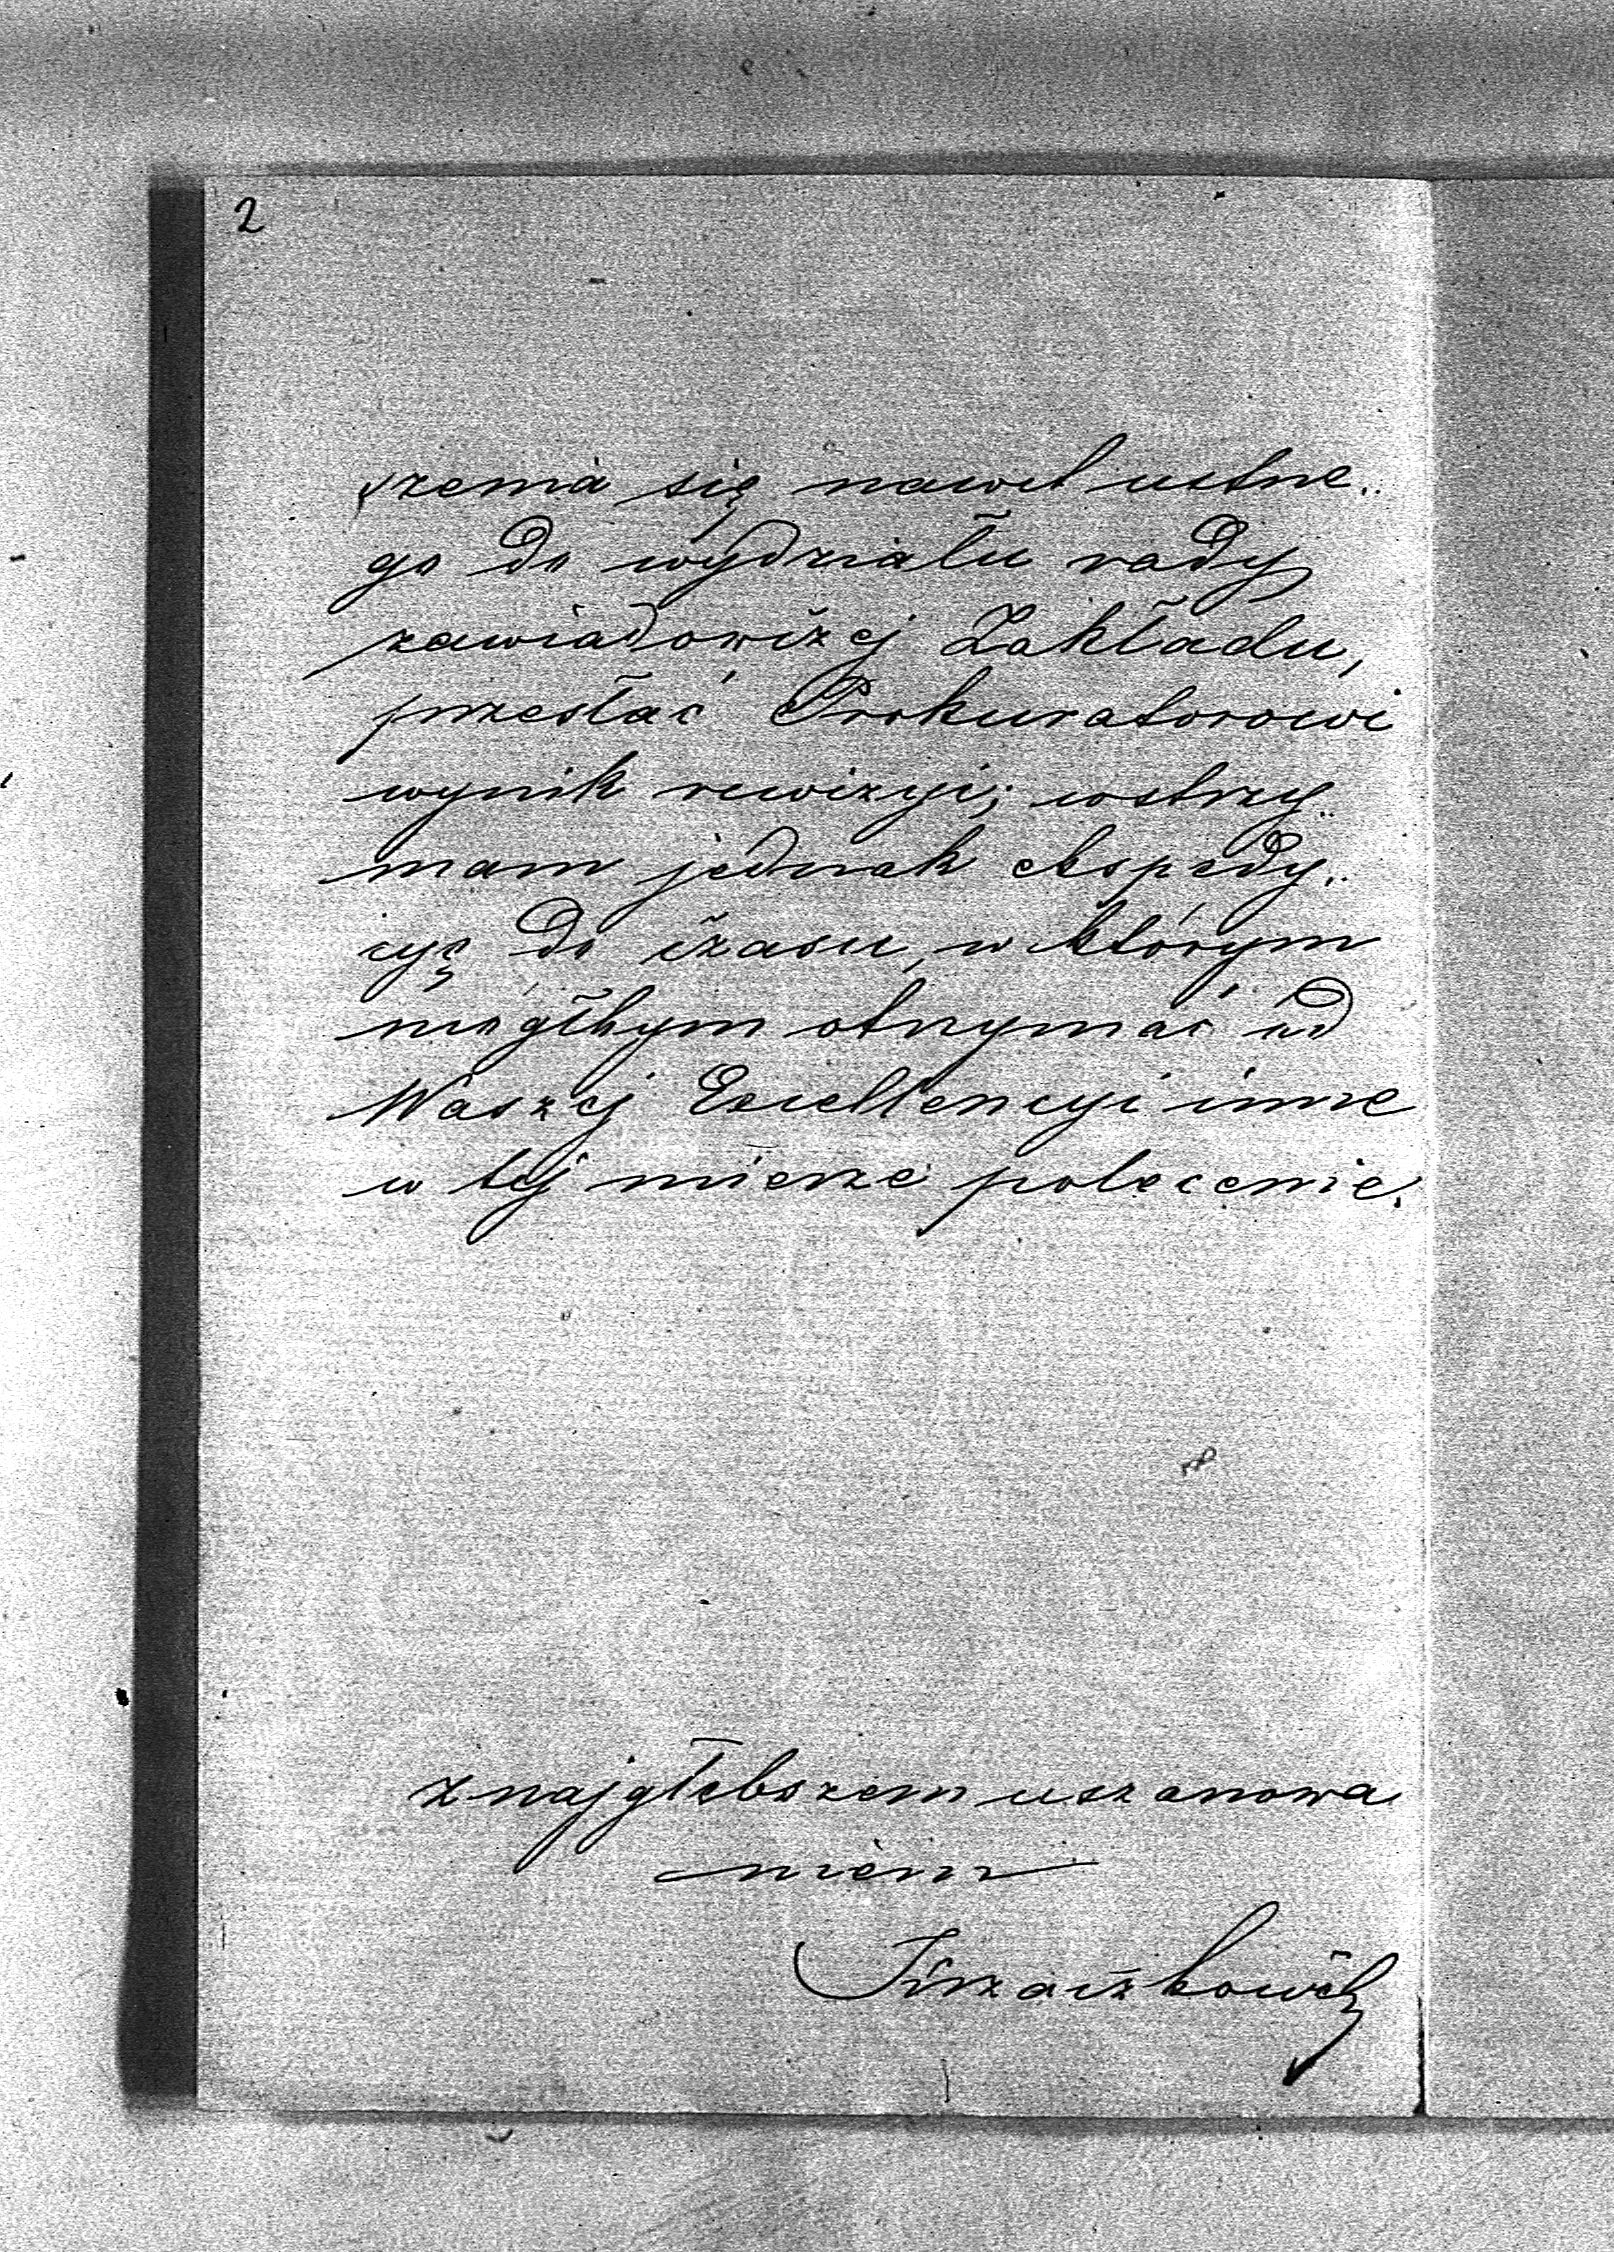 2
szenia się nawet ustne..
go do wydziału rady
zawiadowczej Zakładu,
przesłać Prokuratorowi
wynik rewizyi; wstrzy..
mam jednak ekspedy..
cyę do czasu, w którym
mógłbym otrzymać od
Waszej Excellencyi inne
w tej mierze polecenie.
z najgłebszem uszanowa
niem